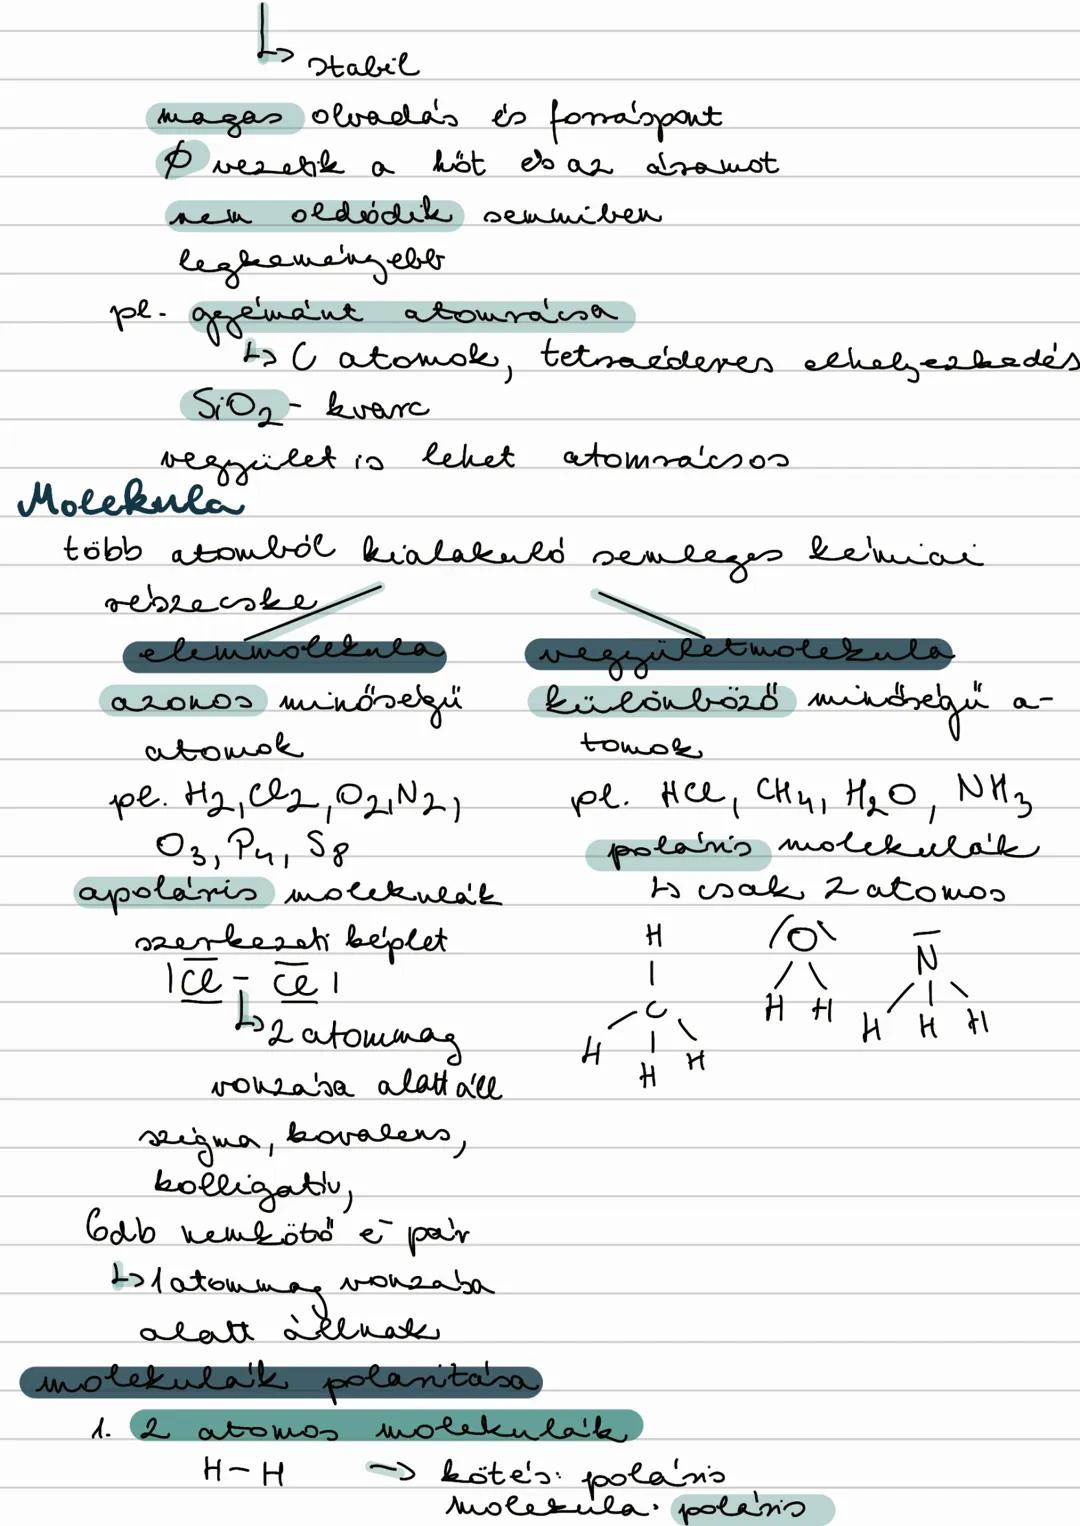 ↳ stabil
magas olvadás és forráspont
∅ vezetik a hőt és az áramot
nem oldódik semmiben
legkeményebb
pl. gyémánt atomrácsa
↳ C atomok, tetraéderes elhelyezkedés
SiO2 - kvarc
vegyület is lehet atomrácsos
Molekula
több atomból kialakuló semleges kémiai
részecske
elemmolekula
azonos minőségű
atomok
pl. H2, Cl2, O2, N2,
O3, P4, S8
apoláris molekulák
szerkezeti képlet
|Cl - Cl|
↳ 2 atommag
vonzása alatt áll
szigma, kovalens,
kolligatív,
6db nemkötő e⁻ pár
↳ 1 atommag vonzása
alatt állnak
vegyületmolekula
különböző minőségű a-
tomok
pl. HCl, CH4, H2O, NH3
poláris molekulák
↳ csak 2 atomos
H
C
H H H
O
H H
N
H H H
molekulák polaritása
1. 2 atomos molekulák
H-H → kötés: poláris
molekula: poláris